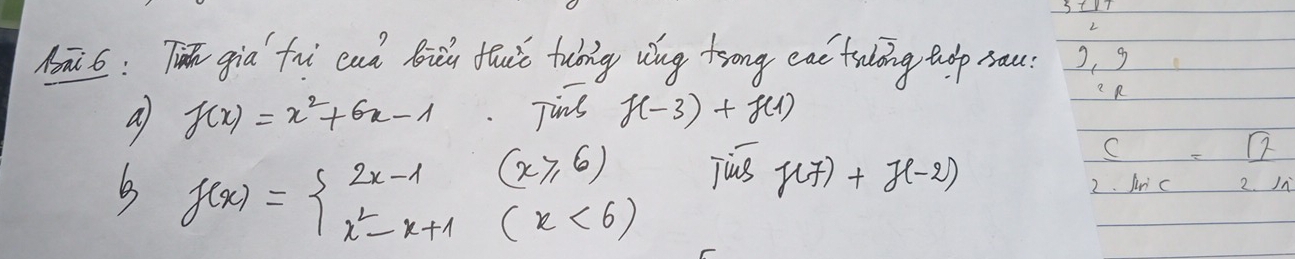 Bài 6: Tính giá trị của biểu thức tương ứng trong các trường hợp sau:
a) f(x) = x² + 6x - 1 . Tính f(-3) + f(1)
b) f(x) = { 2x - 1 (x ≥ 6) Tính f(7) + f(-2)
x² - x + 1 (x < 6)